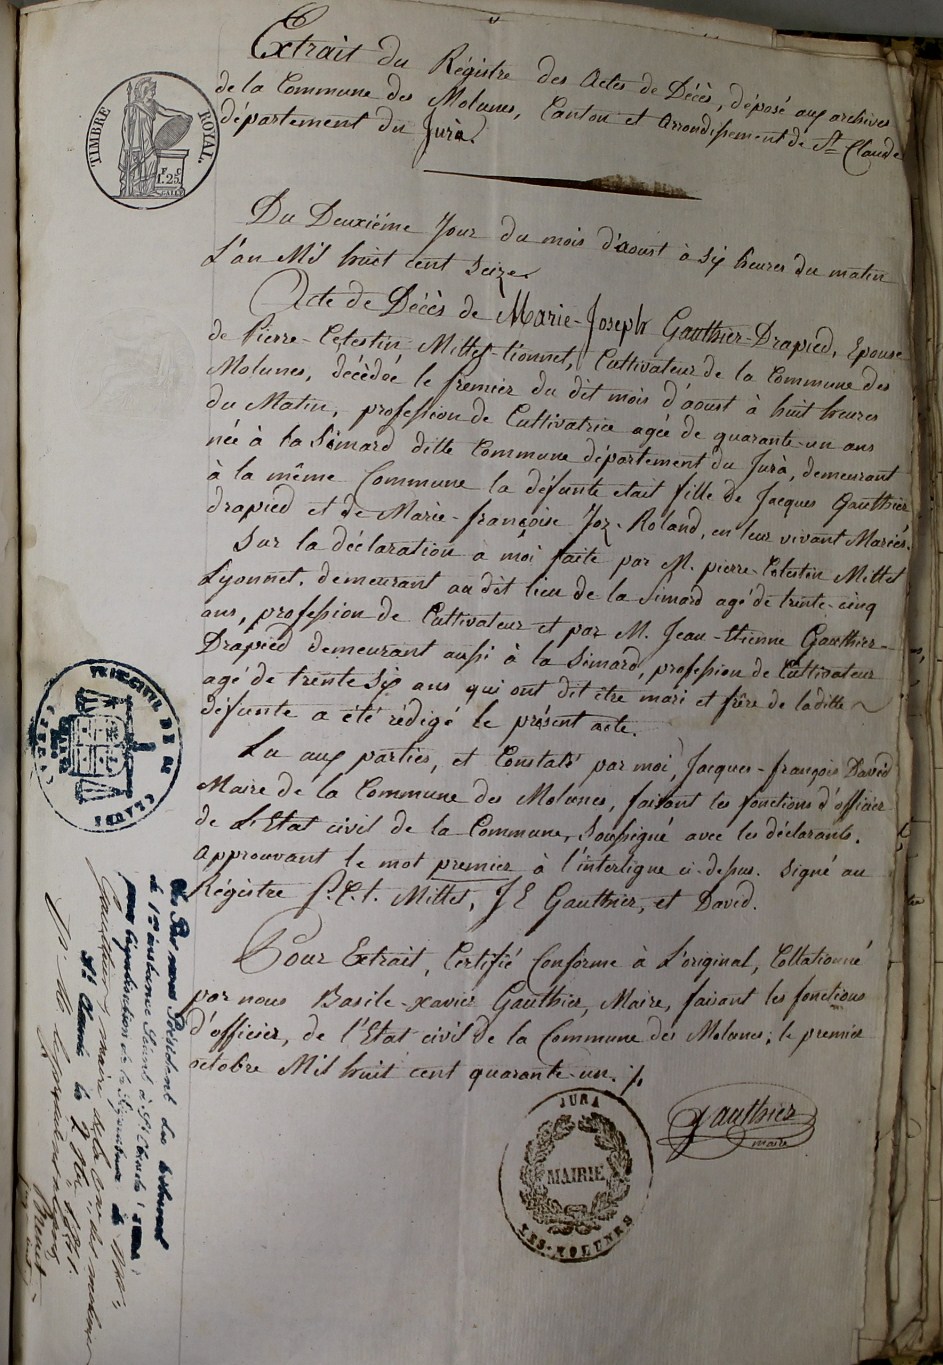 Extrait du Régistre des Actes de Décès, déposé aux archives
de la Commune des Molunes, Canton et Arrondissement de St Claude
département du Jura.
TIMBRE ROYAL.
F. C.
1.25
Du Deuxiéme Jour du mois d'aoust à six heures du matin
L'an Mil huit cent seize.
Acte de Décès de Marie-Joseph Gauthier-Drapied, Epouse
de Pierre-Célestin Mittet-Lionnet, Cultivateur de la Commune des
Molunes, décédée le premier du dit mois d'aoust à huit heures
du Matin, profession de Cultivatrice agée de quarante-un ans
née à la Simard ditte Commune département du Jura, demeurant
à la même Commune la défunte était fille de Jacques Gauthier
drapied et de Marie-françoise Joz-Roland, en leur vivant Mariés.
Sur la déclaration à moi faite par M. pierre-Célestin Mittet
Lyonnet, demeurant au dit lieu de la Simard agé de trente-cinq
ans, profession de Cultivateur et par M. Jean-Etienne Gauthier-
Drapied demeurant aussi à la Simard, profession de Cultivateur
agé de trente six ans qui ont dit être mari et frère de laditte
défunte a été rédigé le présent acte.
Lu aux parties, et Constaté par moi, Jacques-françois David
Maire de la Commune des Molunes, faisant les fonctions d'officier
de L'Etat civil de la Commune, soussigné avec les déclarants.
Approuvant le mot premier à l'interligne ci-dessus. signé au
Régistre P. C. t. Mittet, J E Gauthier, et David.
Pour Extrait, Certifié Conforme à L'original, Collationné
par nous Basile-xavier Gauthier, Maire, faisant les fonctions
d'officier, de l'Etat civil de la Commune des Molunes; le premier
octobre Mil huit cent quarante-un.
Gauthier
maire
JURA
MAIRIE
LES-MOLUNES
PREMIERE DE
CLAUDE
Vu Par nous Président du tribunal
de 1re instance Séant à St Claude
pour légalisation de la Signature de
Gauthier, maire de la des molunes
St Claude le 1841.